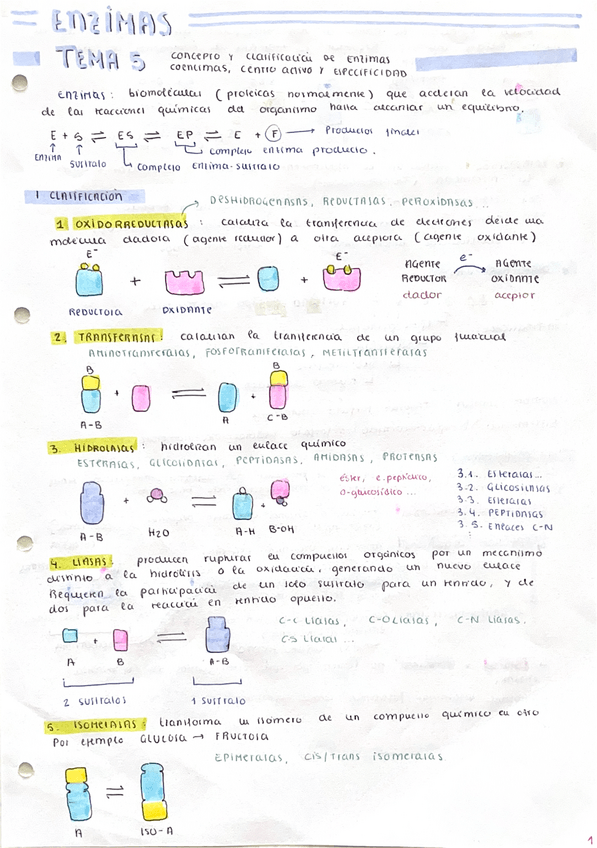 ENZIMAS
TEMA 5 CONCEPTO Y CLASIFICACIÓN DE ENZIMAS
COENZIMAS, CENTRO ACTIVO Y ESPECIFICIDAD
ENZIMAS: biomoléculas (proteicas normalmente) que aceleran la velocidad
de las reacciones químicas del organismo hasta alcanzar un equilibrio.
E + S ⇌ ES ⇌ EP ⇌ E + F → Productos finales
ENZIMA SUSTRATO complejo enzima producto.
complejo enzima-sustrato
1 CLASIFICACIÓN
DESHIDROGENASAS, REDUCTASAS, PEROXIDASAS...
1 OXIDORREDUCTASAS: cataliza la transferencia de electrones desde una
molécula dadora (agente reductor) a otra aceptora (agente oxidante)
E⁻ E⁻
+ ⇌ +
REDUCTORA OXIDANTE
AGENTE REDUCTOR dador e⁻ AGENTE OXIDANTE aceptor
2. TRANSFERASAS: catalizan la transferencia de un grupo funcional
AMINOTRANSFERASAS, FOSFOTRANSFERASAS, METILTRANSFERASAS
B B
+ ⇌ +
A-B A C-B
3. HIDROLASAS: hidrolizan un enlace químico
ESTERASAS, GLICOSIDASAS, PEPTIDASAS, AMIDASAS, PROTEASAS
éster, e. peptídico,
o-glucosídico ...
3.1. Esterasas...
3.2. Glicosidasas
3.3. Eterasas
3.4. PEPTIDASAS
3.5. Enlaces C-N
+ ⇌ +
A-B H2O A-H B-OH
4. LIASAS: producen rupturas en compuestos orgánicos por un mecanismo
distinto a la hidrólisis o la oxidación, generando un nuevo enlace
Requieren la participación de un solo sustrato para un sentido, y de
dos para la reacción en sentido opuesto.
C-C Liasas, C-O Liasas, C-N Liasas.
C-S Liasas ...
+ ⇌
A B A-B
2 sustratos 1 sustrato
5. ISOMERASAS: transforma un isómero de un compuesto químico en otro
Por ejemplo GLUCOSA → FRUCTOSA
EPIMERASAS, cis/trans isomerasas
⇌
A ISO-A
1